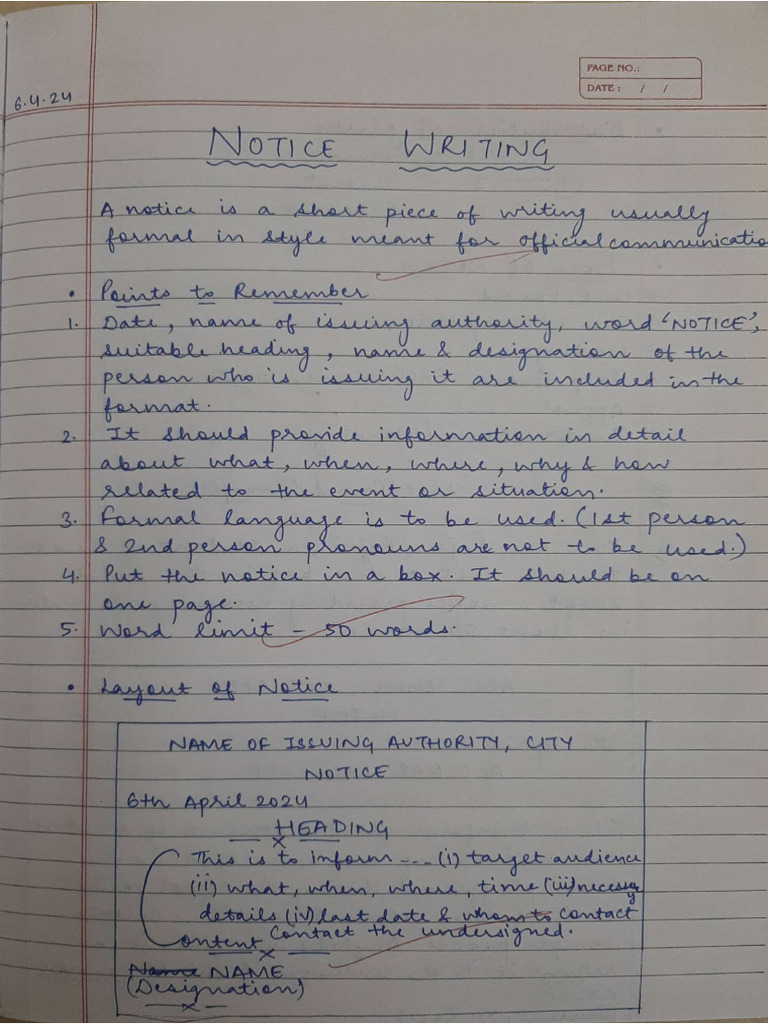 PAGE NO.:
DATE: / /
6.4.24
NOTICE WRITING
A notice is a short piece of writing usually
formal in style meant for official communicatio
• Points to Remember
1. Date, name of issuing authority, word 'NOTICE',
suitable heading, name & designation of the
person who is issuing it are included in the
format.
2. It should provide information in detail
about what, when, where, why & how
related to the event or situation.
3. Formal language is to be used. (1st person
& 2nd person pronouns are not to be used.)
4. Put the notice in a box. It should be on
one page.
5. Word limit - 50 words.
• Layout of Notice
NAME OF ISSUING AUTHORITY, CITY
NOTICE
6th April 2024
HEADING
This is to inform --- (i) target audience
(ii) what, when, where, time (iii) necessary
details (iv) last date & whom to contact
Content Contact the undersigned.
Name NAME
(Designation)